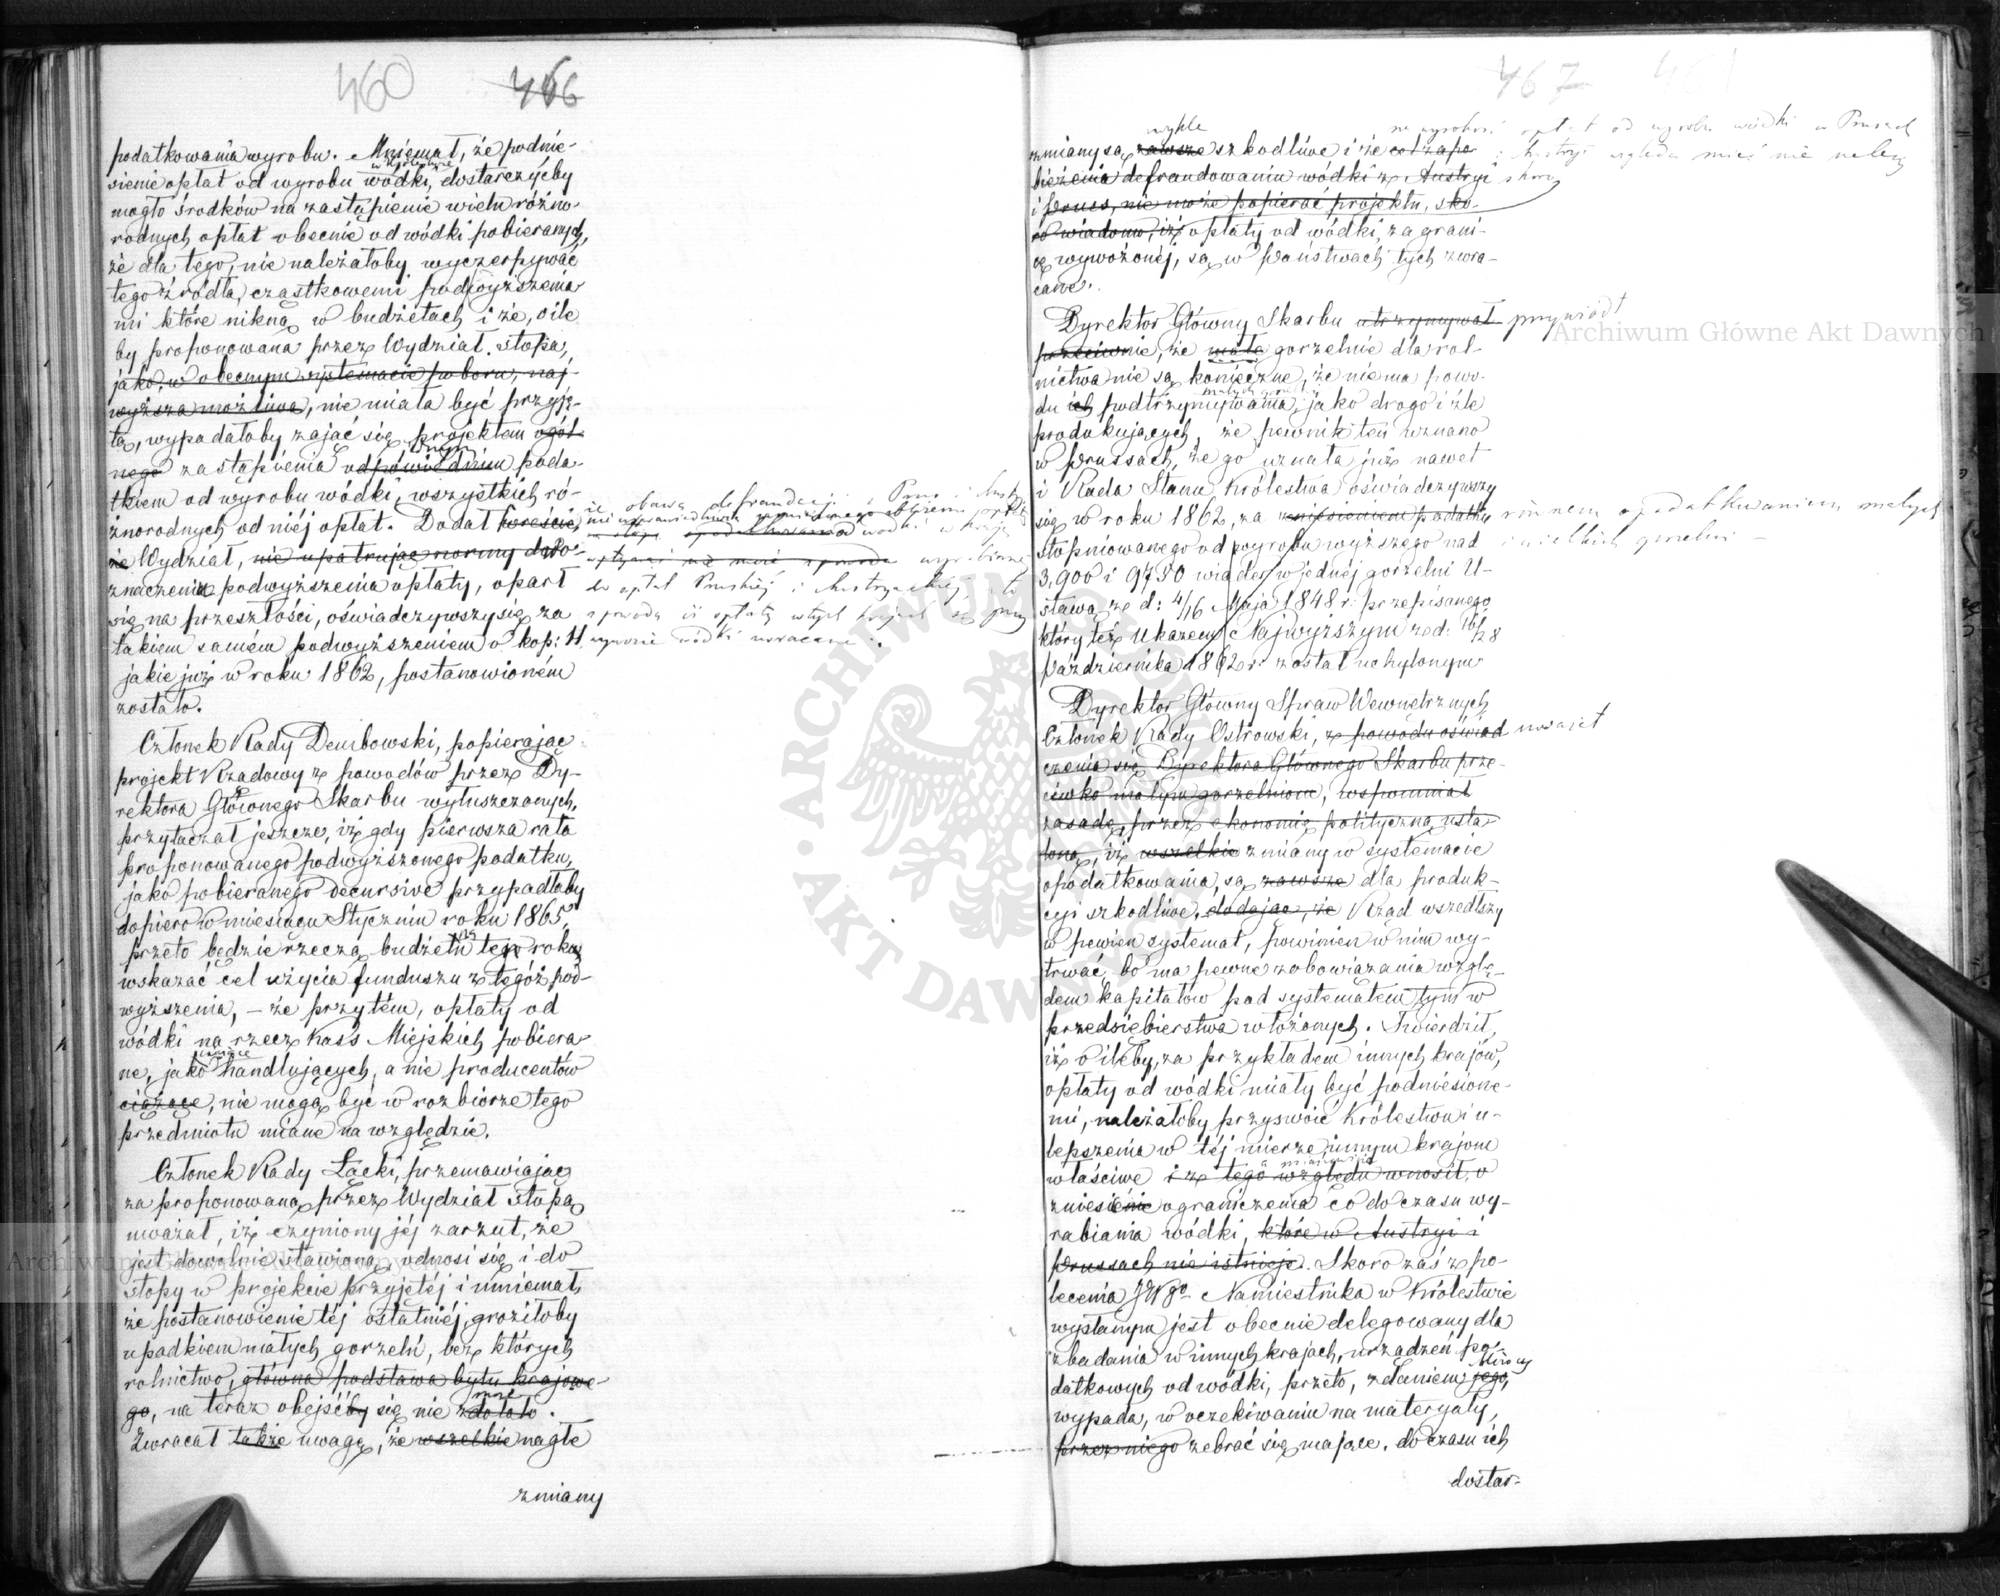 460 466
podatkowania wyrobu. Mniemał, że podnie-
w Królestwie
sienie opłat od wyrobu wódki, dostarczyćby
mogło środków na zastąpienie wielu różno-
rodnych opłat obecnie od wódki pobieranych,
że dla tego, nie należałoby wyczerpywać
tego źródła, cząstkowemi podwyższenia-
mi które nikną w budżetach i że, oile
by proponowana przez Wydział stopa,
jako, w obecnym systemacie poboru, naj-
wyższa możliwa, nie miała być przyję-
tą, wypadałoby zająć się projektem ogól-
nego zastąpienia odpowiedniem poda-
tkiem od wyrobu wódki, wszystkich ró-
żnorodnych od niéj opłat. Dodał wreście,
że Wydział, nie upatrując normy do o-
znaczenia podwyższenia opłaty, oparł
się na przeszłości, oświadczywszy się za
takiem samém podwyższeniem o kop: 11
jakie już w roku 1862, postanowioném
zostało.
że obawa defraudacji z Prus i Austryi
nie usprawiedliwia
wódki w kraju
do opłat Pruskiéj i Austryackiéj, to
opłaty w tych krajach są przy
wywozie wódki zwracane.
Członek Rady Dembowski, popierając
projekt Rządowy z powodów przez Dy-
rektora Głównego Skarbu wyłuszczonych,
przytaczał jeszcze, iż gdy pierwsza rata
proponowanego podwyższonego podatku,
jako pobieranego decursive przypadłaby
dopiero w miesiącu Styczniu roku 1865,
przeto będzie rzeczą budżetu tego roku
wskazać cel użycia funduszu z tegóż pod-
wyższenia, – że przytém, opłaty od
wódki na rzecz Kass Miejskich pobiera-
ciążące
ne, jako handlujących, a nie producentów
ciążące, nie mogą być w rozbiorze tego
przedmiotu miane na względzie.
Członek Rady Łącki, przemawiając
za proponowaną przez Wydział stopą
uważał, iż czyniony jéj zarzut, że
jest dowolnie stawioną, odnosi się i do
stopy w projekcie przyjętéj i mniemał,
że postanowienie téj ostatniéj, groziłoby
upadkiem małych gorzelń, bez których
rolnictwo, główna podstawa bytu krajowe-
go, na teraz obejśćby się nie zdołało.
może
Zwracał także uwagę, że wszelkie nagłe
zmiany
467 461
zwykle
zmiany są zawsze szkodliwe i że co do zapo-
bieżenia defraudowaniu wódki z Austryi
i Pruss, nie może popierać projektu, sko-
ro wiadomo, iż opłaty od wódki, za grani-
cę wywożonéj, są w Państwach tych zwra-
cane.
na wysokość opłat od wyrobu wódki w Prusach
i Austryi względu mieć nie należy
skoro
Dyrektor Główny Skarbu utrzymywał przywiódł
przeciwnie, że małe gorzelnie dla rol-
nictwa nie są konieczne, że niema powo-
du ich podtrzymywania, jako drogo i źle
produkujących, że pewnik ten uznano
w Prussach, że go uznała już nawet
i Rada Stanu Królestwa oświadczywszy
się w roku 1862, za zniesieniem podatku równem opodatkowaniem małych
stopniowanego od pogrobu wyższego nad i wielkich gorzelni –
3,900 i 9750 wiader w jednéj gorzelni U-
stawą z d: 4/16 Maja 1848 r: przepisanego,
który też Ukazem Najwyższym z d: 16/28
Października 1862 r. został uchylonym
Dyrektor Główny Spraw Wewnętrznych
Członek Rady Ostrowski, z powodu oświad- uważał
czenia się Dyrektora Głównego Skarbu prze-
ciwko małym gorzelniom, wspomniał
zasadę, przez ekonomię polityczną usta-
loną, iż wszelkie zmiany w systemacie
opodatkowania, są zawsze dla produk-
cyi szkodliwe, dodając, że Rząd wszedłszy
w pewien systemat, powinien w nim wy-
trwać, bo ma pewne zobowiązania wzglę-
dem kapitałów pod systematem tym w
przedsiębierstwa włożonych. Twierdził,
iż oileby, za przykładem innych krajów,
opłaty od wódki miały być podniesione-
mi, należałoby przyswoić Królestwu i u-
lepszenia w téj mierze innym krajom
a mianowicie
właściwe i z tego względu wnosił, o
zniesienie ograniczenia co do czasu wy-
rabiania wódki, które w Austryi i
Prussach nie istnieje. Skoro zaś z po-
lecenia JWgo Namiestnika w Królestwie
wysłanym jest obecnie delegowany dla
zbadania w innych krajach, urządzeń po-
datkowych od wódki, przeto, zdaniem jego,
Mówcy
wypada, w oczekiwaniu na materyały,
przez niego zebrać się mające, do czasu ich
dostar-
Archiwum Główne Akt Dawnych
Archiwum Główne Akt Dawnych
ARCHIWUM GŁÓWNE AKT DAWNYCH